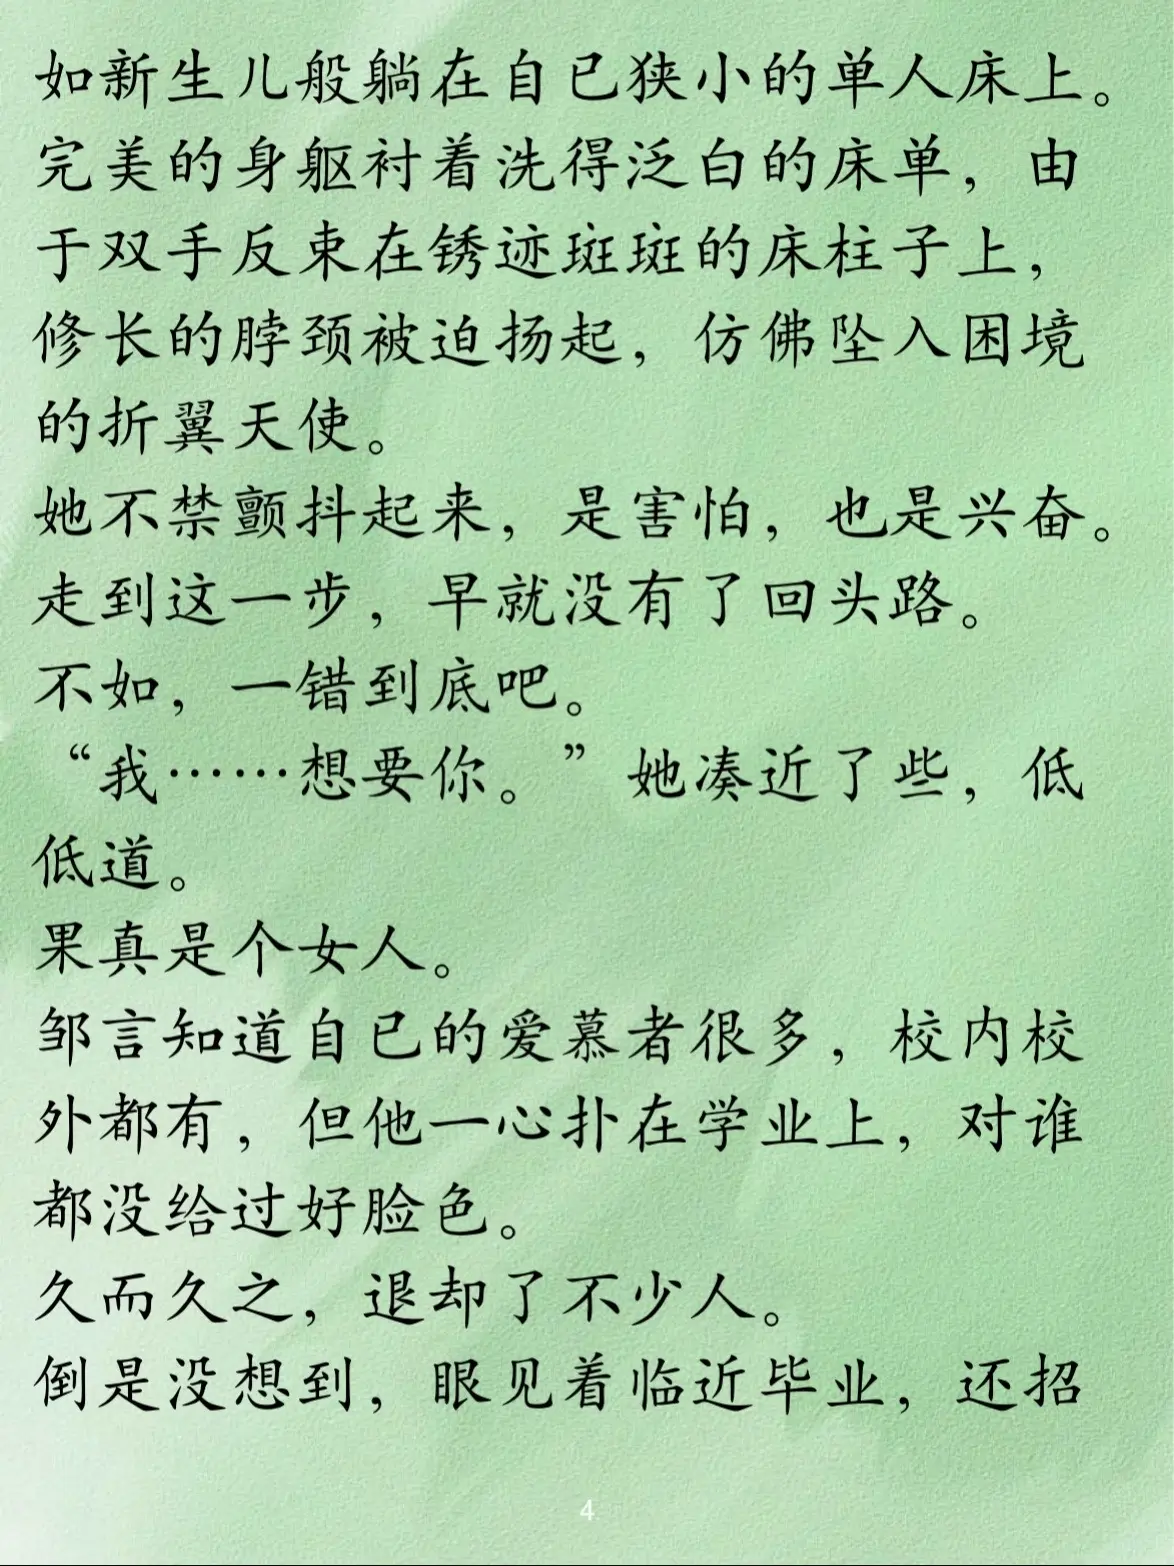 如新生儿般躺在自己狭小的单人床上。
完美的身躯衬着洗得泛白的床单，由
于双手反束在锈迹斑斑的床柱子上，
修长的脖颈被迫扬起，仿佛坠入困境
的折翼天使。
她不禁颤抖起来，是害怕，也是兴奋。
走到这一步，早就没有了回头路。
不如，一错到底吧。
“我……想要你。”她凑近了些，低
低道。
果真是个女人。
邹言知道自己的爱慕者很多，校内校
外都有，但他一心扑在学业上，对谁
都没给过好脸色。
久而久之，退却了不少人。
倒是没想到，眼见着临近毕业，还招
4